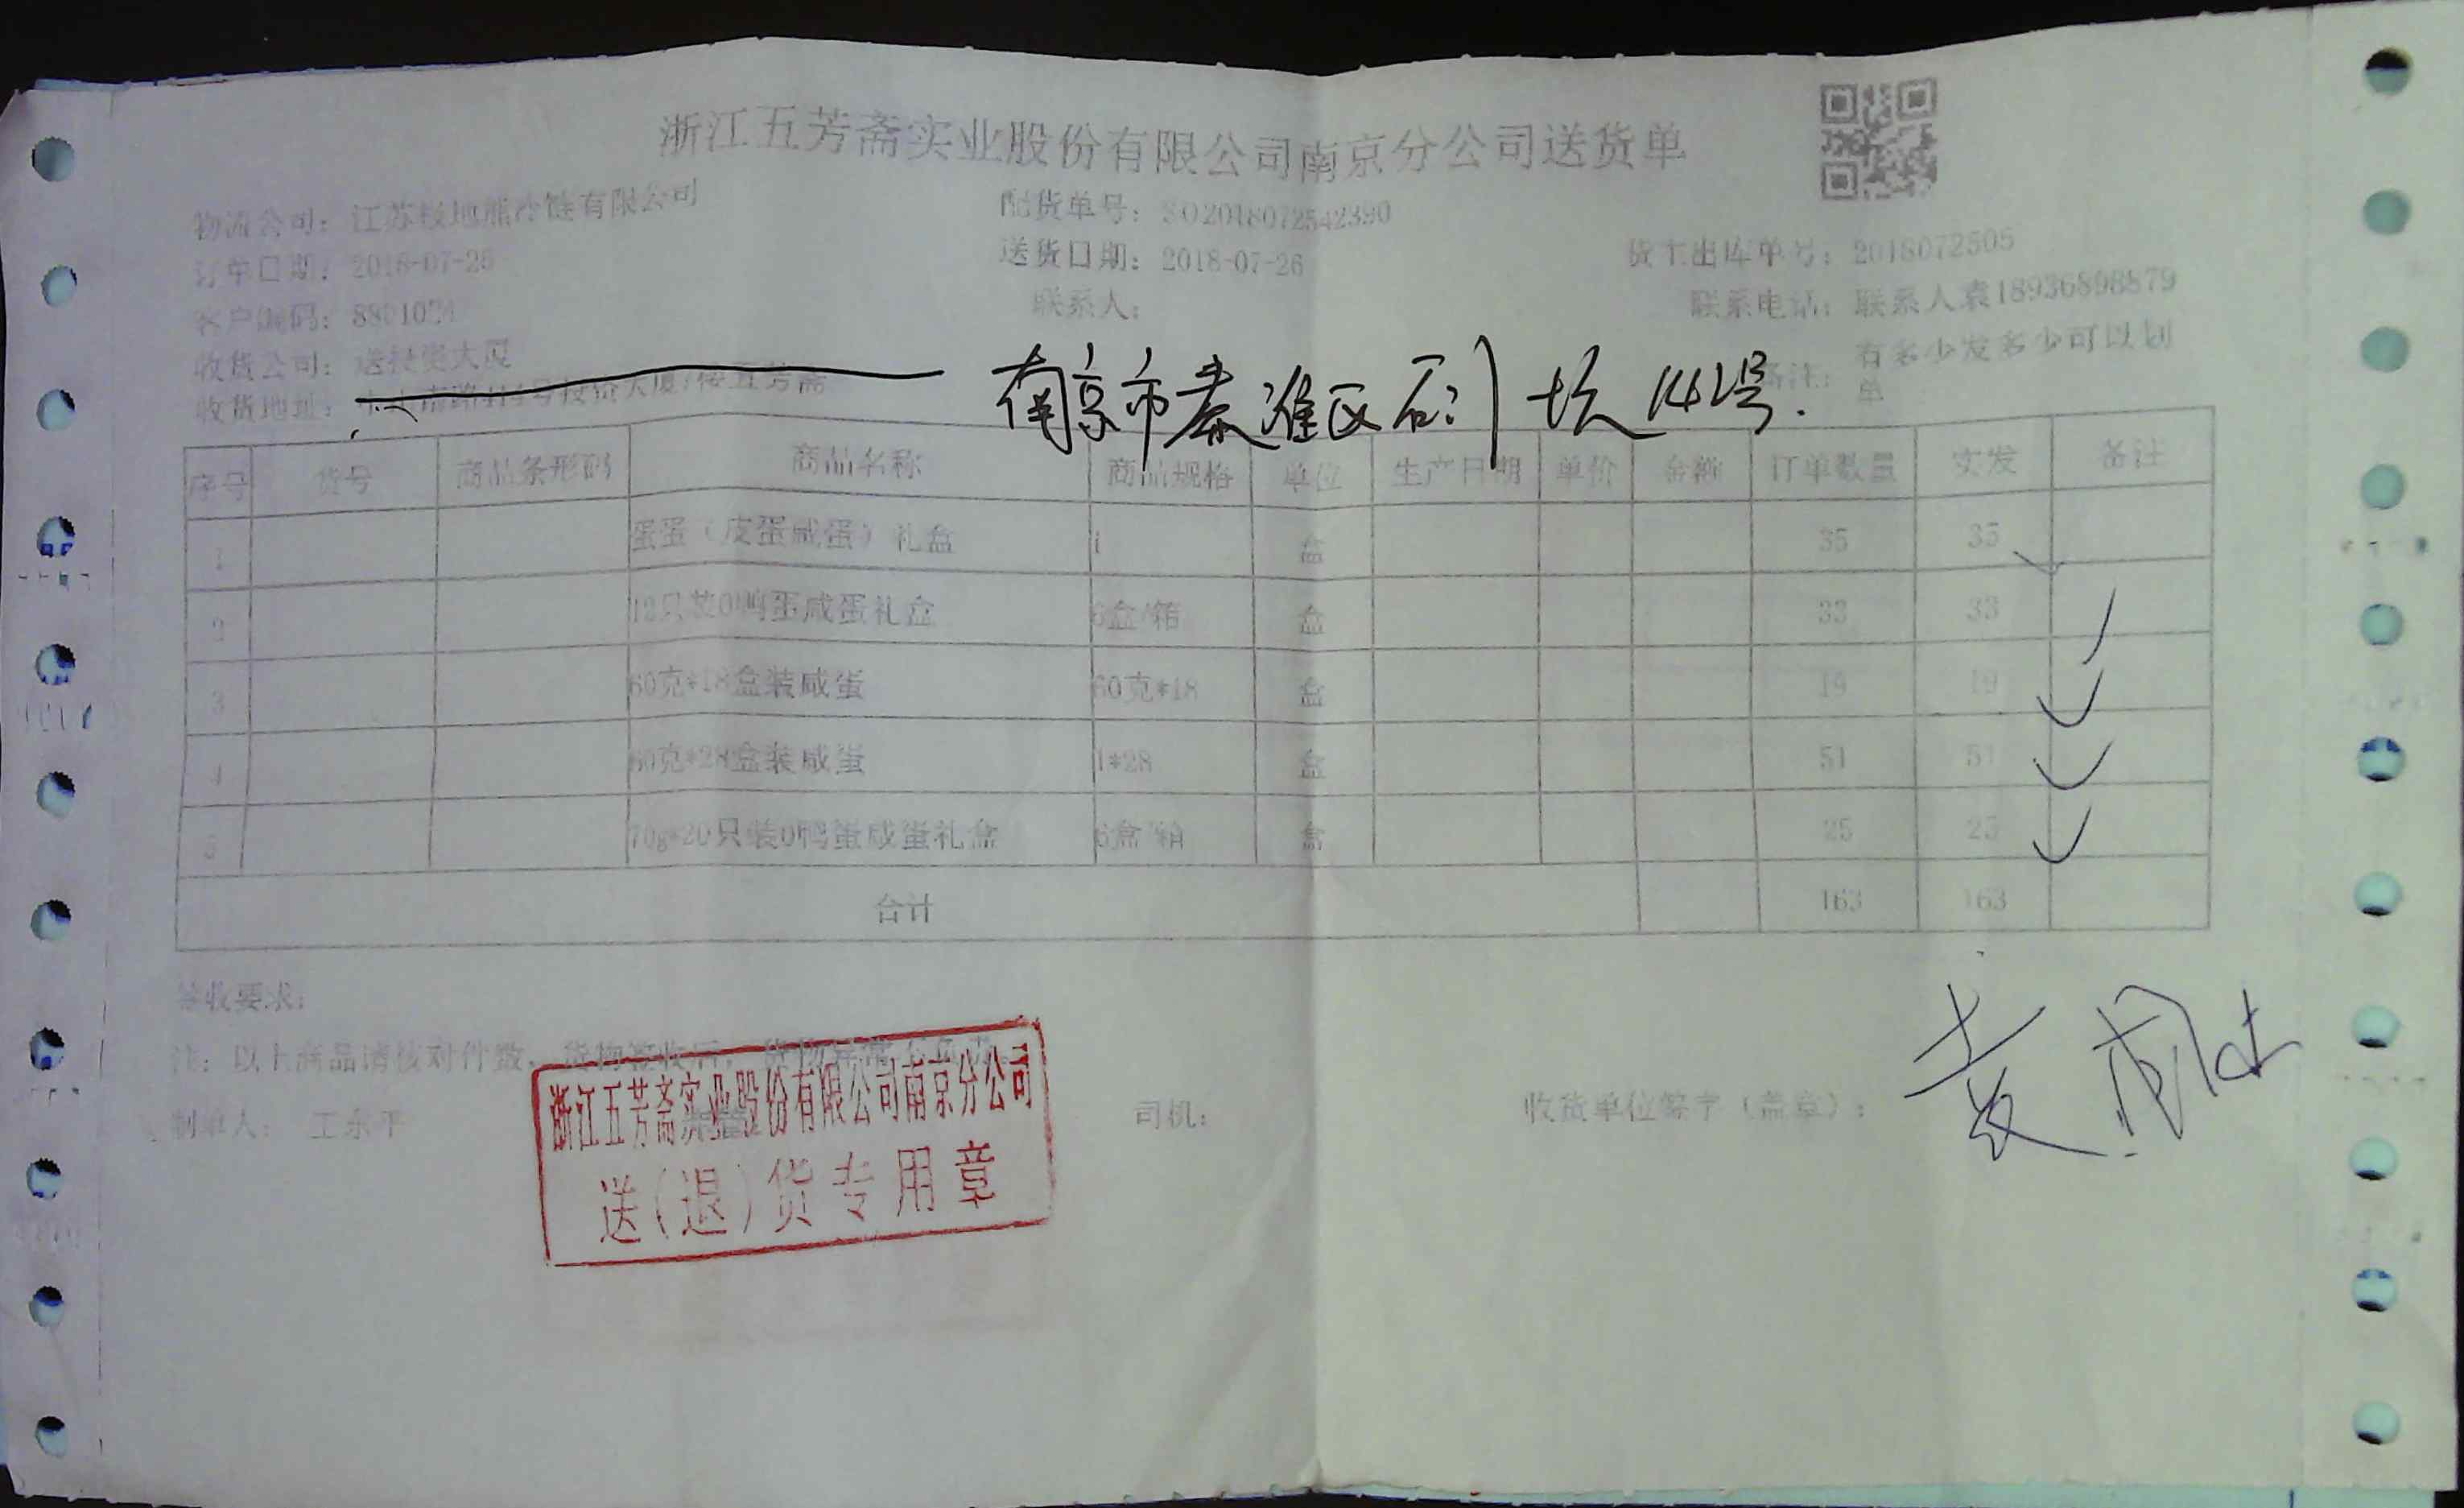 浙江五芳斋实业股份有限公司南京分公司送货单
物流公司：江苏极地熊冷链有限公司
配货单号：SO2018072542390
订单日期：2018-07-25
送货日期：2018-07-26
货主出库单号：2018072505
客户编码：8801024
联系人：
联系电话：联系人袁18936898879
收货公司：送投资大厦
备注：有多少发多少可以划单
收货地址：
南京市秦淮区石门坎142号.
序号 货号 商品条形码 商品名称 商品规格 单位 生产日期 单价 金额 订单数量 实发 备注
1 蛋蛋（皮蛋咸蛋）礼盒 1 盒 35 35
2 12只装0鸭蛋咸蛋礼盒 6盒/箱 盒 33 33
3 60克*18盒装咸蛋 60克*18 盒 19 19
4 60克*28盒装咸蛋 1*28 盒 51 51
5 70g*20只装0鸭蛋咸蛋礼盒 6盒/箱 盒 25 25
合计 163 163
签收要求：
注：以上商品请核对件数，货物签收后，货物异常
制单人：王永平
司机：
收货单位签字（盖章）：
浙江五芳斋实业股份有限公司南京分公司
送(退)货专用章